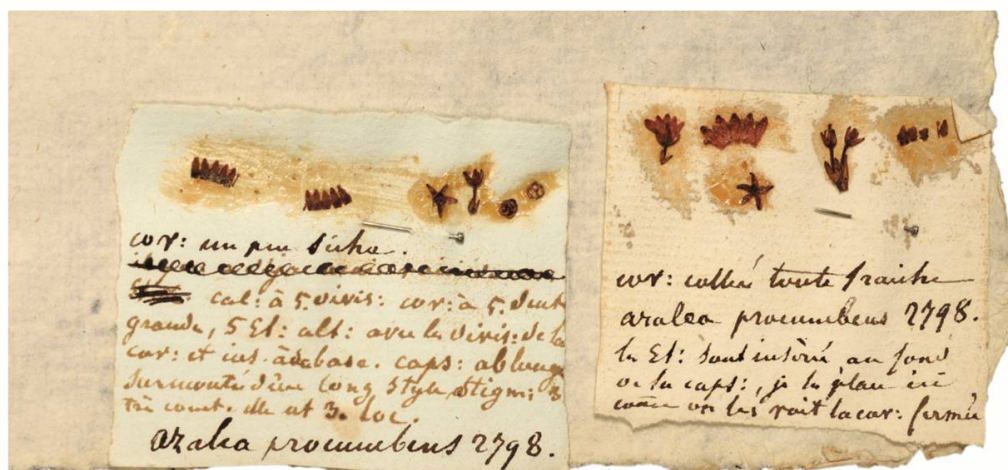 cor: un peu sècha.
cal: à 5 divis: cor: à 5 dent
grande, 5 Et: alt: avec les divis: de la
cor: et ins. à sa base. caps: oblong
surmonté d'un long style stigm: 3
très court. elle at 3. loc.
azalea procumbens 2798.
cor: collée toute fraiche
azalea procumbens 2798.
les Et: sont insérés au fond
de la caps:, je les place ici
comme on les voit la cor: fermée